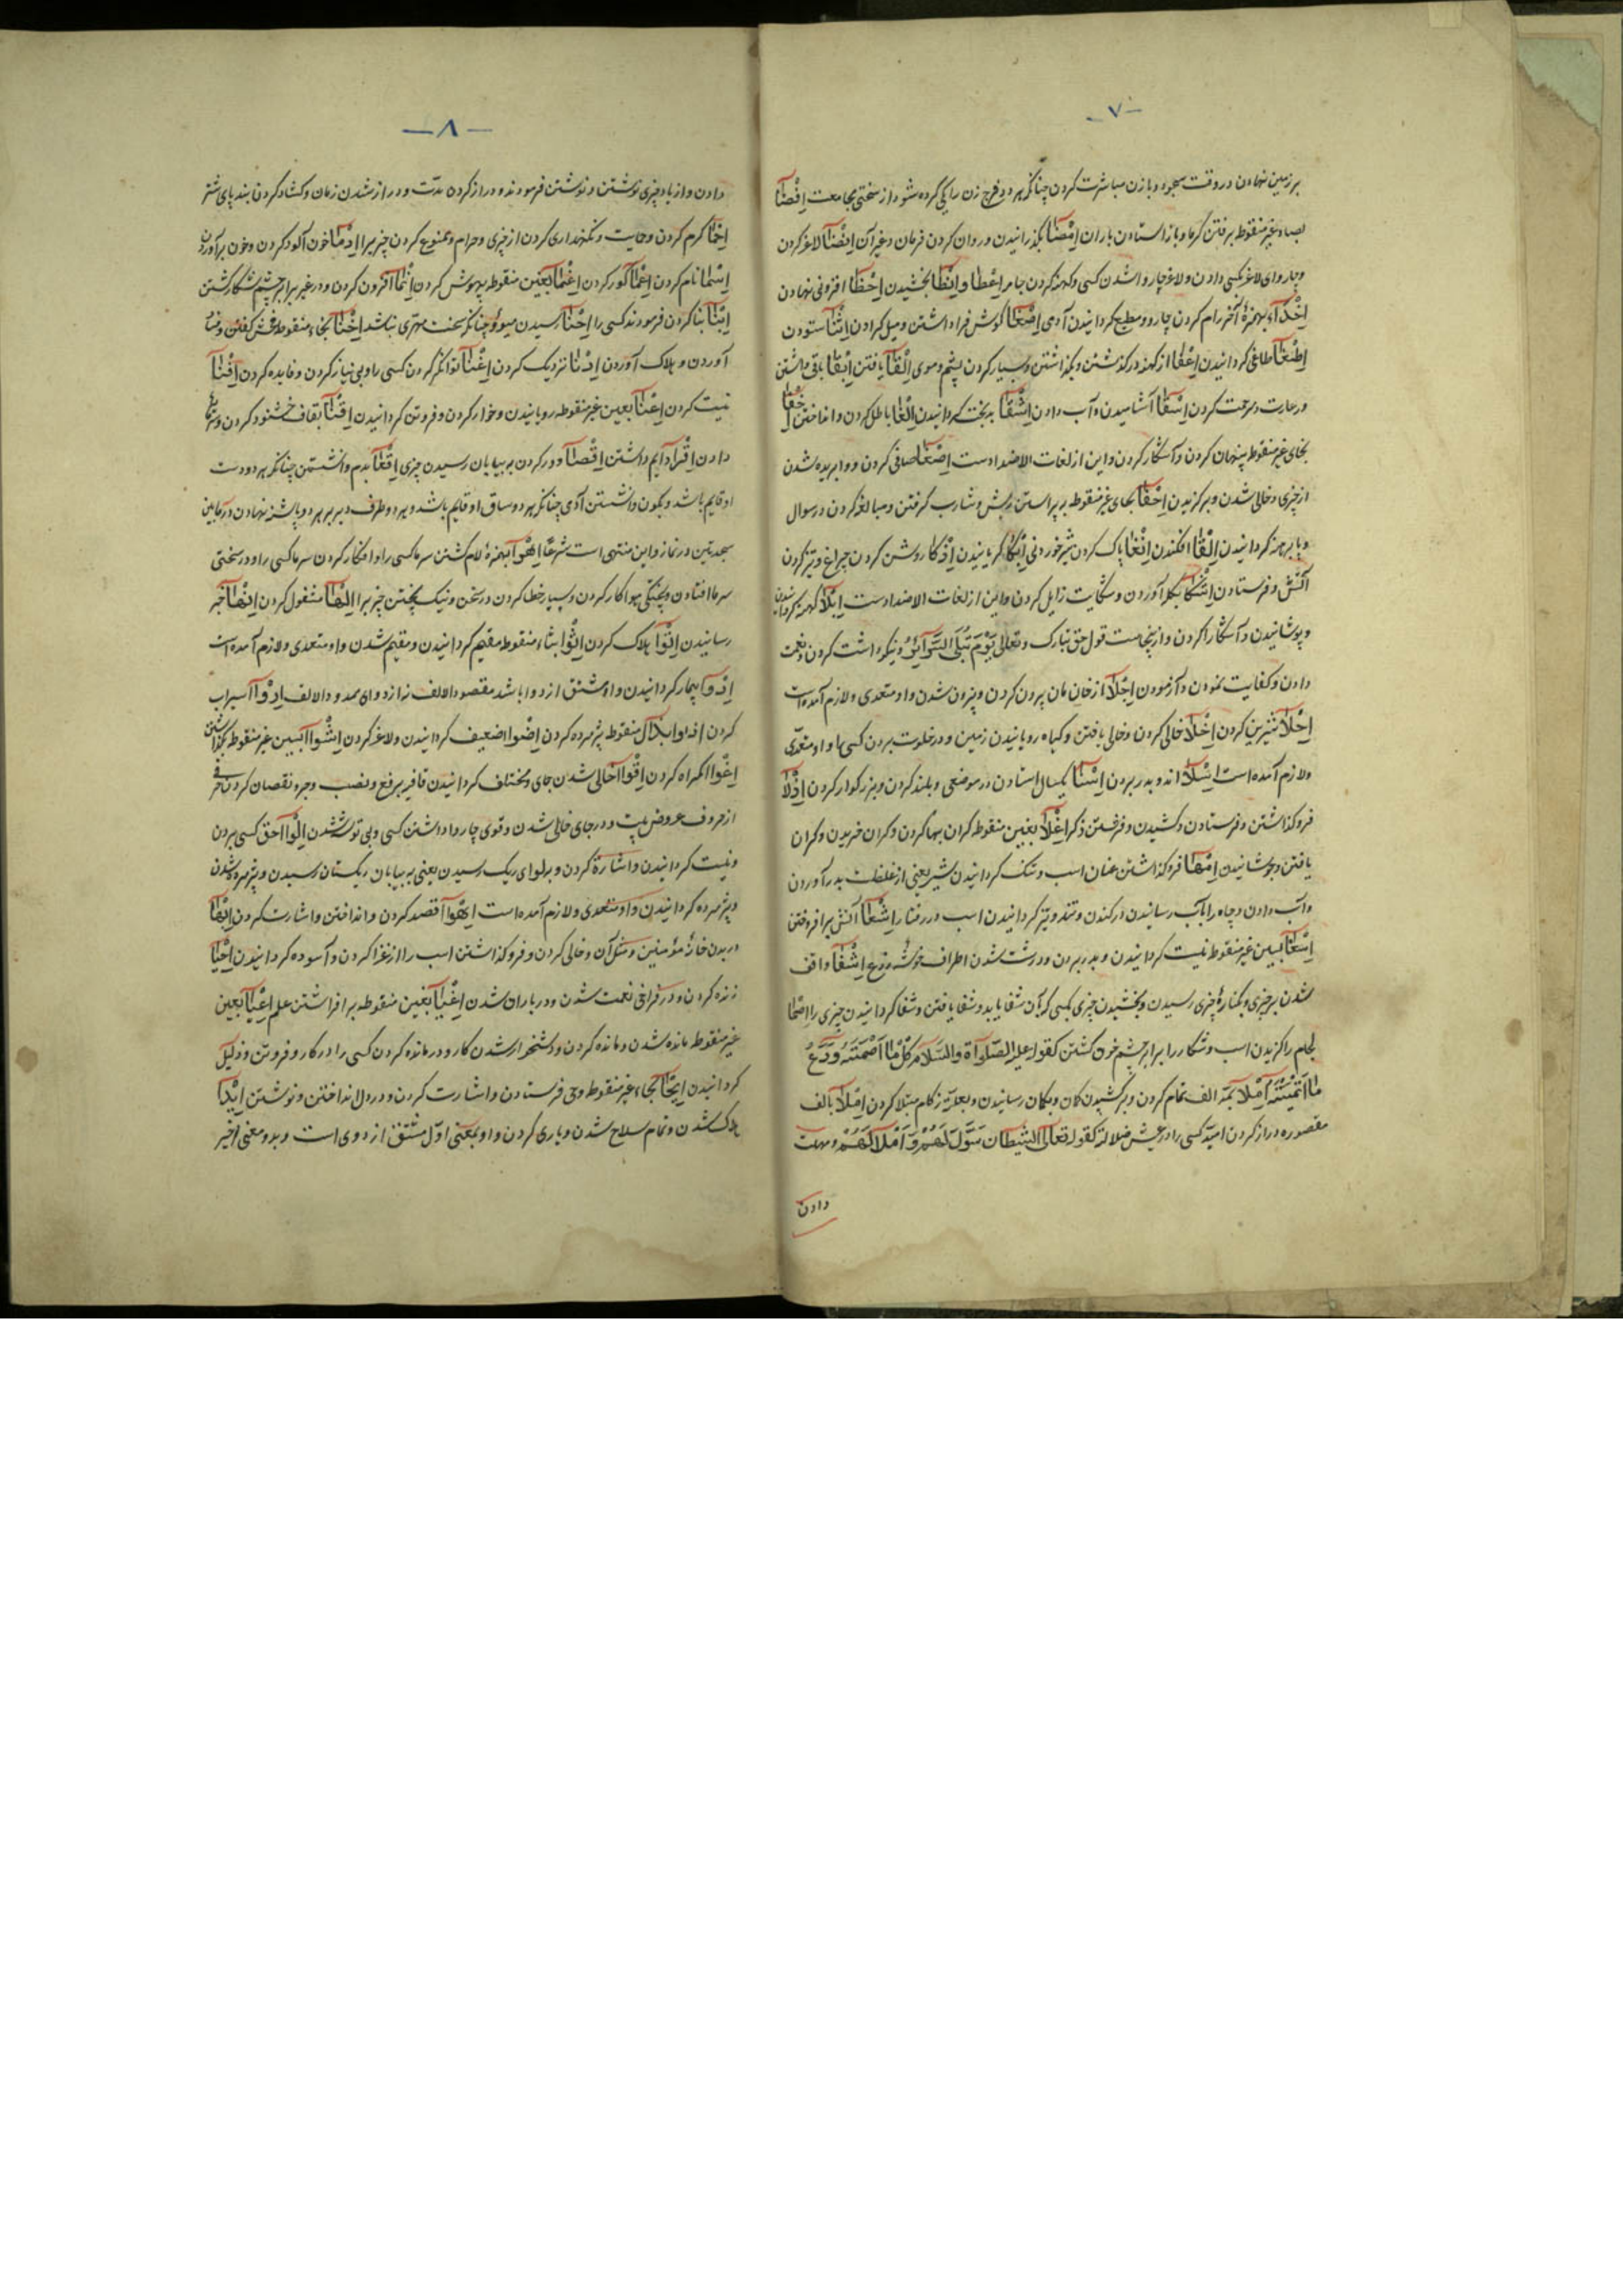 -٧-
بر زمین نهادن در وقت سجود و با زن مباشرت کردن چنانکه هر دو فرج زن را یکی کرده شود از سختی مجامعت اِفْصَآء
بصاد غیر منقوط برفتن گرما و باز استادن باران اِمْضَآ بگذرانیدن و روان کردن فرمان و غیر آن اِنْضَآ لاغر کردن
و چاروای لاغر بکسی دادن و لاغر چاروا شدن کسی و کهنه کردن جامه اِعْطَا و اِنْطَا بخشیدن اِحْظَا افزونی نهادن
اِخْذَآء بهمزۀ آخر رام کردن چاروا و مطیع گردانیدن آدمی اِصْغَا گوش فراداشتن و میل کردن اِثْنَا ستودن
اِطْغَا طاغی گردانیدن اِعْفَا از کهنه درگذشتن و بگذاشتن و بسیار کردن پشم و موی اِلْفَا یافتن اِبْقَا باقی داشتن
و رعایت و مرحمت کردن اِسْقَا آشامیدن و آب دادن اِشْقَا بدبخت گردانیدن اِلْغَا باطل کردن و انداختن اِخْفَا
بخای غیر منقوط پنهان کردن و آشکار کردن و این از لغات الاضداد است اِصْفَا صافی کردن و وابریده شدن
از چیزی و خالی شدن و برگزیدن اِحْفَا بحای غیر منقوط بر پیراستن ریش و شارب گرفتن و مبالغه کردن در سوال
و پا برهنه گردانیدن اِلْقَا افکندن اِنْقَا پاک کردن شیر خوردنی اِبْکَا گریانیدن اِذْکَا روشن کردن چراغ و تیز کردن
آتش و فرستادن اِشْکَا بگله آوردن و شکایت زایل کردن و این از لغات الاضداد است اِبْلَا کهنه گردانیدن
و پوشانیدن و آشکارا کردن و ازینجاست قول حق تبارک و تعالی یَوْمَ تُبْلَی السَّرَآئِرُ و نیکو داشت کردن و نعمت
دادن و کفایت نمودن و آزمودن اِجْلَا از خان مان بیرون کردن و بیرون شدن و او متعدی و لازم آمده است
اِحْلَا شیرین کردن اِخْلَا خالی کردن و خالی یافتن و گیاه رویانیدن زمین و در خلوت بردن کسی را و او متعدی
و لازم آمده است اِسْلَا اندوه بدر بردن اِسْنَا یکسال استادن در موضعی و بلند کردن و بزرگوار کردن اِدْلَا
فرو گذاشتن و فرستادن و کشیدن و فرشتن ذکر اِغْلَا بغین منقوطه گران بها کردن و گران خریدن و گران
یافتن و جوشانیدن اِمْهَا فرو گذاشتن عنان اسب و تنک گردانیدن شیر یعنی از غلظت بدر آوردن
و آب دادن و چاه را بآب رسانیدن در کندن و تند و تیز گردانیدن اسب در رفتار اِشْعَا آتش برافروختن
اِسْفَا بسین غیر منقوط نیست گردانیدن و بدر بردن و درشت شدن اطراف خوشه زرع اِشْفَا واقف
شدن بر چیزی و بکنارۀ چیزی رسیدن و بخشیدن چیزی بکسی که بآن شفا یابد و شفا یافتن و شفا گردانیدن چیزی را اِصْمَا
لجام را گزیدن اسب و شکار را برابر چشم خود کشتن کقوله علیه الصّلوٰة والسّلام کُلْ مٰا اَصْمَیْتَهُ وَدَعْ
مٰا اَنْمَیْتَهُ اِمْلَا بمد الف تمام کردن و بر کشیدن کمان و بکمان رسانیدن و بعلت زکام مبتلا کردن اِمْلَا بالف
مقصوره دراز کردن امید کسی را در عیش ضلالة کقوله تعالی الشَّیْطَان سَوَّلَ لَهُمْ وَاَمْلَا لَهُمْ و مهلت
دادن
-٨-
دادن و از یاد چیزی نوشتن و نوشتن فرمودن و دراز کردن مدت و دراز شدن زمان و کشاد کردن بند پای شتر
اِحْمَا گرم کردن و حمایت و نگهداری کردن از چیزی و حرام و ممنوع کردن چیز برا اِدْمَا خون آلود کردن و خون برآوردن
اِسْمَا نام کردن اِعْمَا کور کردن اِغْمَا بغین منقوطه بیهوش کردن اِنْمَا افزون کردن و در غیر برابر چشم شکار کشتن
اِبْنَا بنا کردن فرمودن کسی را اِجْنَا رسیدن میوه چنانکه سخت مهتری نباشد اِخْنَا بخاء منقوط فحش گفتن و فساد
آوردن و هلاک آوردن اِدْنَا نزدیک کردن اِغْنَا توانگر کردن کسی را و بی نیاز کردن و فایده کردن اِفْنَا
نیست کردن اِعْنَا بعین غیر منقوطه رویانیدن و خوار کردن و فروتن گردانیدن اِقْنَا بقاف خشنود کردن و سرمایه
دادن اِقْرَا دایم داشتن اِقْصَا دور کردن به بیابان رسیدن چیزی اِقْعَا بدم وانشستن چنانکه هر دو دست
او قایم باشد و بکون وانشستن آدمی چنانکه هر دو ساق او قایم باشد و هر دو طرف دبر بر هر دو پاشنه نهادن در مابین
سجدتین در نماز و این منتهی است شرعاً اِهْوَا بهمزۀ لام کشتن سرما کسی را و افکار کردن سرما کسی را و در سختی
سرما افتادن و پختگی هوا کار کردن و بسیار خطا کردن در سخن و نیک پختن چیز برا اِلْهَا مشغول کردن اِنْهَا خبر
رسانیدن اِتْوَا هلاک کردن اِثْوَا بثاء منقوط مقیم گردانیدن و مقیم شدن و او متعدی و لازم آمده است
اِدْوَا بیمار گردانیدن و او مشتق از دوا باشد مقصود الالف نه از دوای ممدود الالف اِرْوَا سیراب
کردن اِذْوَا بذال منقوط پژمرده کردن اِضْوَا ضعیف گردانیدن و لاغر کردن اِسْوَا بسین غیر منقوط بگذاشتن
اِغْوَا گمراه کردن اِقْوَا خالی شدن جای و مختلف گردانیدن قافیه برفع و نصب و جر و نقصان کردن حرفی
از حروف عروض بیت و در جای خالی شدن و قوی چاروا داشتن کسی و بی توشه شدن اِلْوَا حق کسی بردن
و نیست گردانیدن و اشارة کردن و بر لوای ریک رسیدن یعنی به بیابان ریکستان رسیدن و پژمرده شدن
و پژمرده گردانیدن و او متعدی و لازم آمده است اِهْوَا قصد کردن و انداختن و اشارت کردن اِبْهَا
دریدن خانۀ مؤمنین و مثل آن و خالی کردن و فرو گذاشتن اسب را از غزا کردن و آسوده گردانیدن اِحْیَا
زنده کردن و در فراخی نعمت شدن و در باران شدن اِغْیَا بغین منقوطه بر افراشتن علم اِعْیَا بعین
غیر منقوط مانده شدن و مانده کردن و دشخوار شدن کار و درمانده کردن کسی را در کار و فروتن و ذلیل
گردانیدن اِیْحَا بحاء غیر منقوط وحی فرستادن و اشارت کردن و در دل انداختن و نوشتن اِیْدَا
هلاک شدن و تمام سلاح شدن و یاری کردن و او بمعنی اول مشتق از ودی است و بدو معنی اخیر